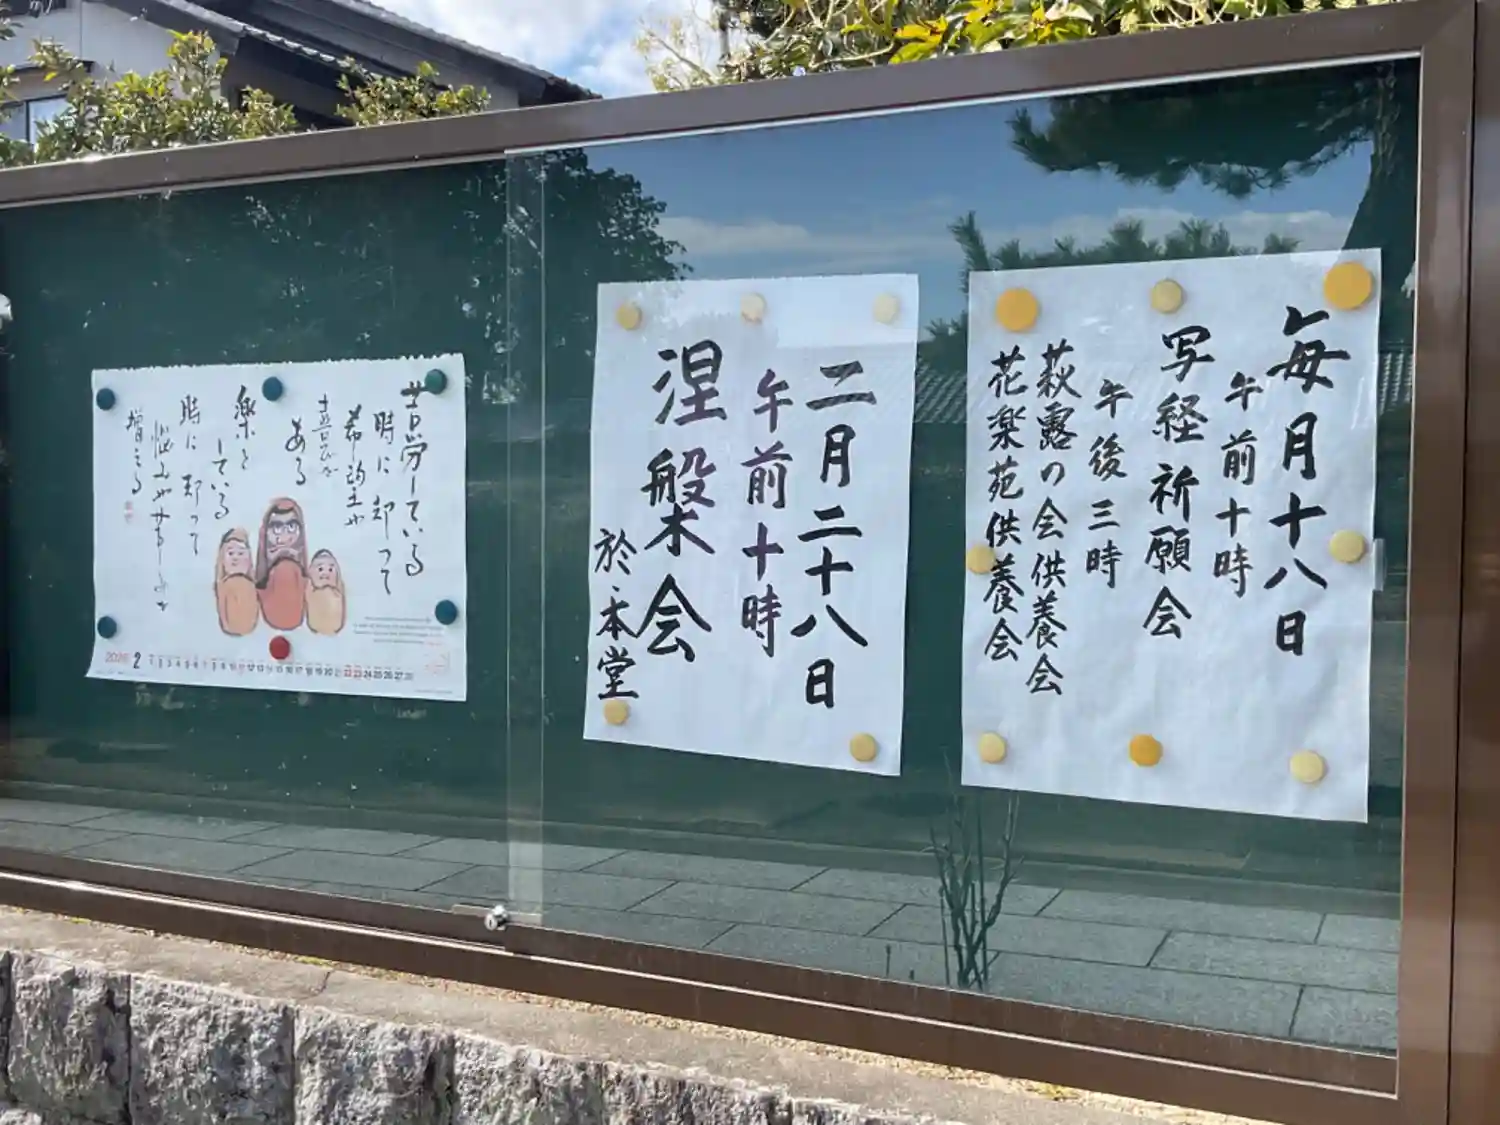 毎月十八日
午前十時
写経祈願会
午後三時
萩露の会供養会
花楽苑供養会
二月二十八日
午前十時
涅槃会
於・本堂
苦労している
時に却って
希望や
喜びが
ある
楽を
している
時に却って
悩みや苦しみが
増える
2026 2 1 2 3 4 5 6 7 8 9 10 11 12 13 14 15 16 17 18 19 20 21 22 23 24 25 26 27 28